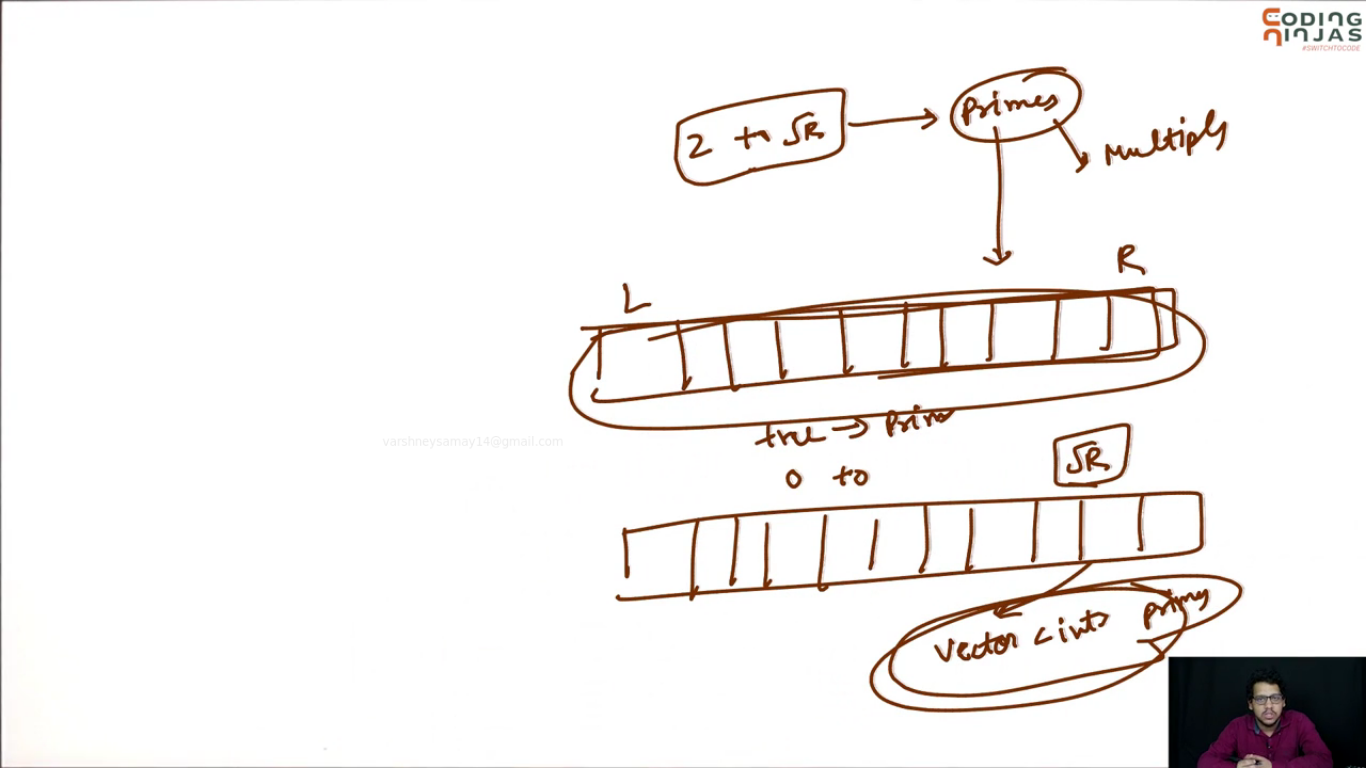 CODING
NINJAS
#SWITCHTOCODE
2 to √R
Primes
Multiply
L
R
true → Prim
varshneysamay14@gmail.com
√R
0 to
vector <int>
primes